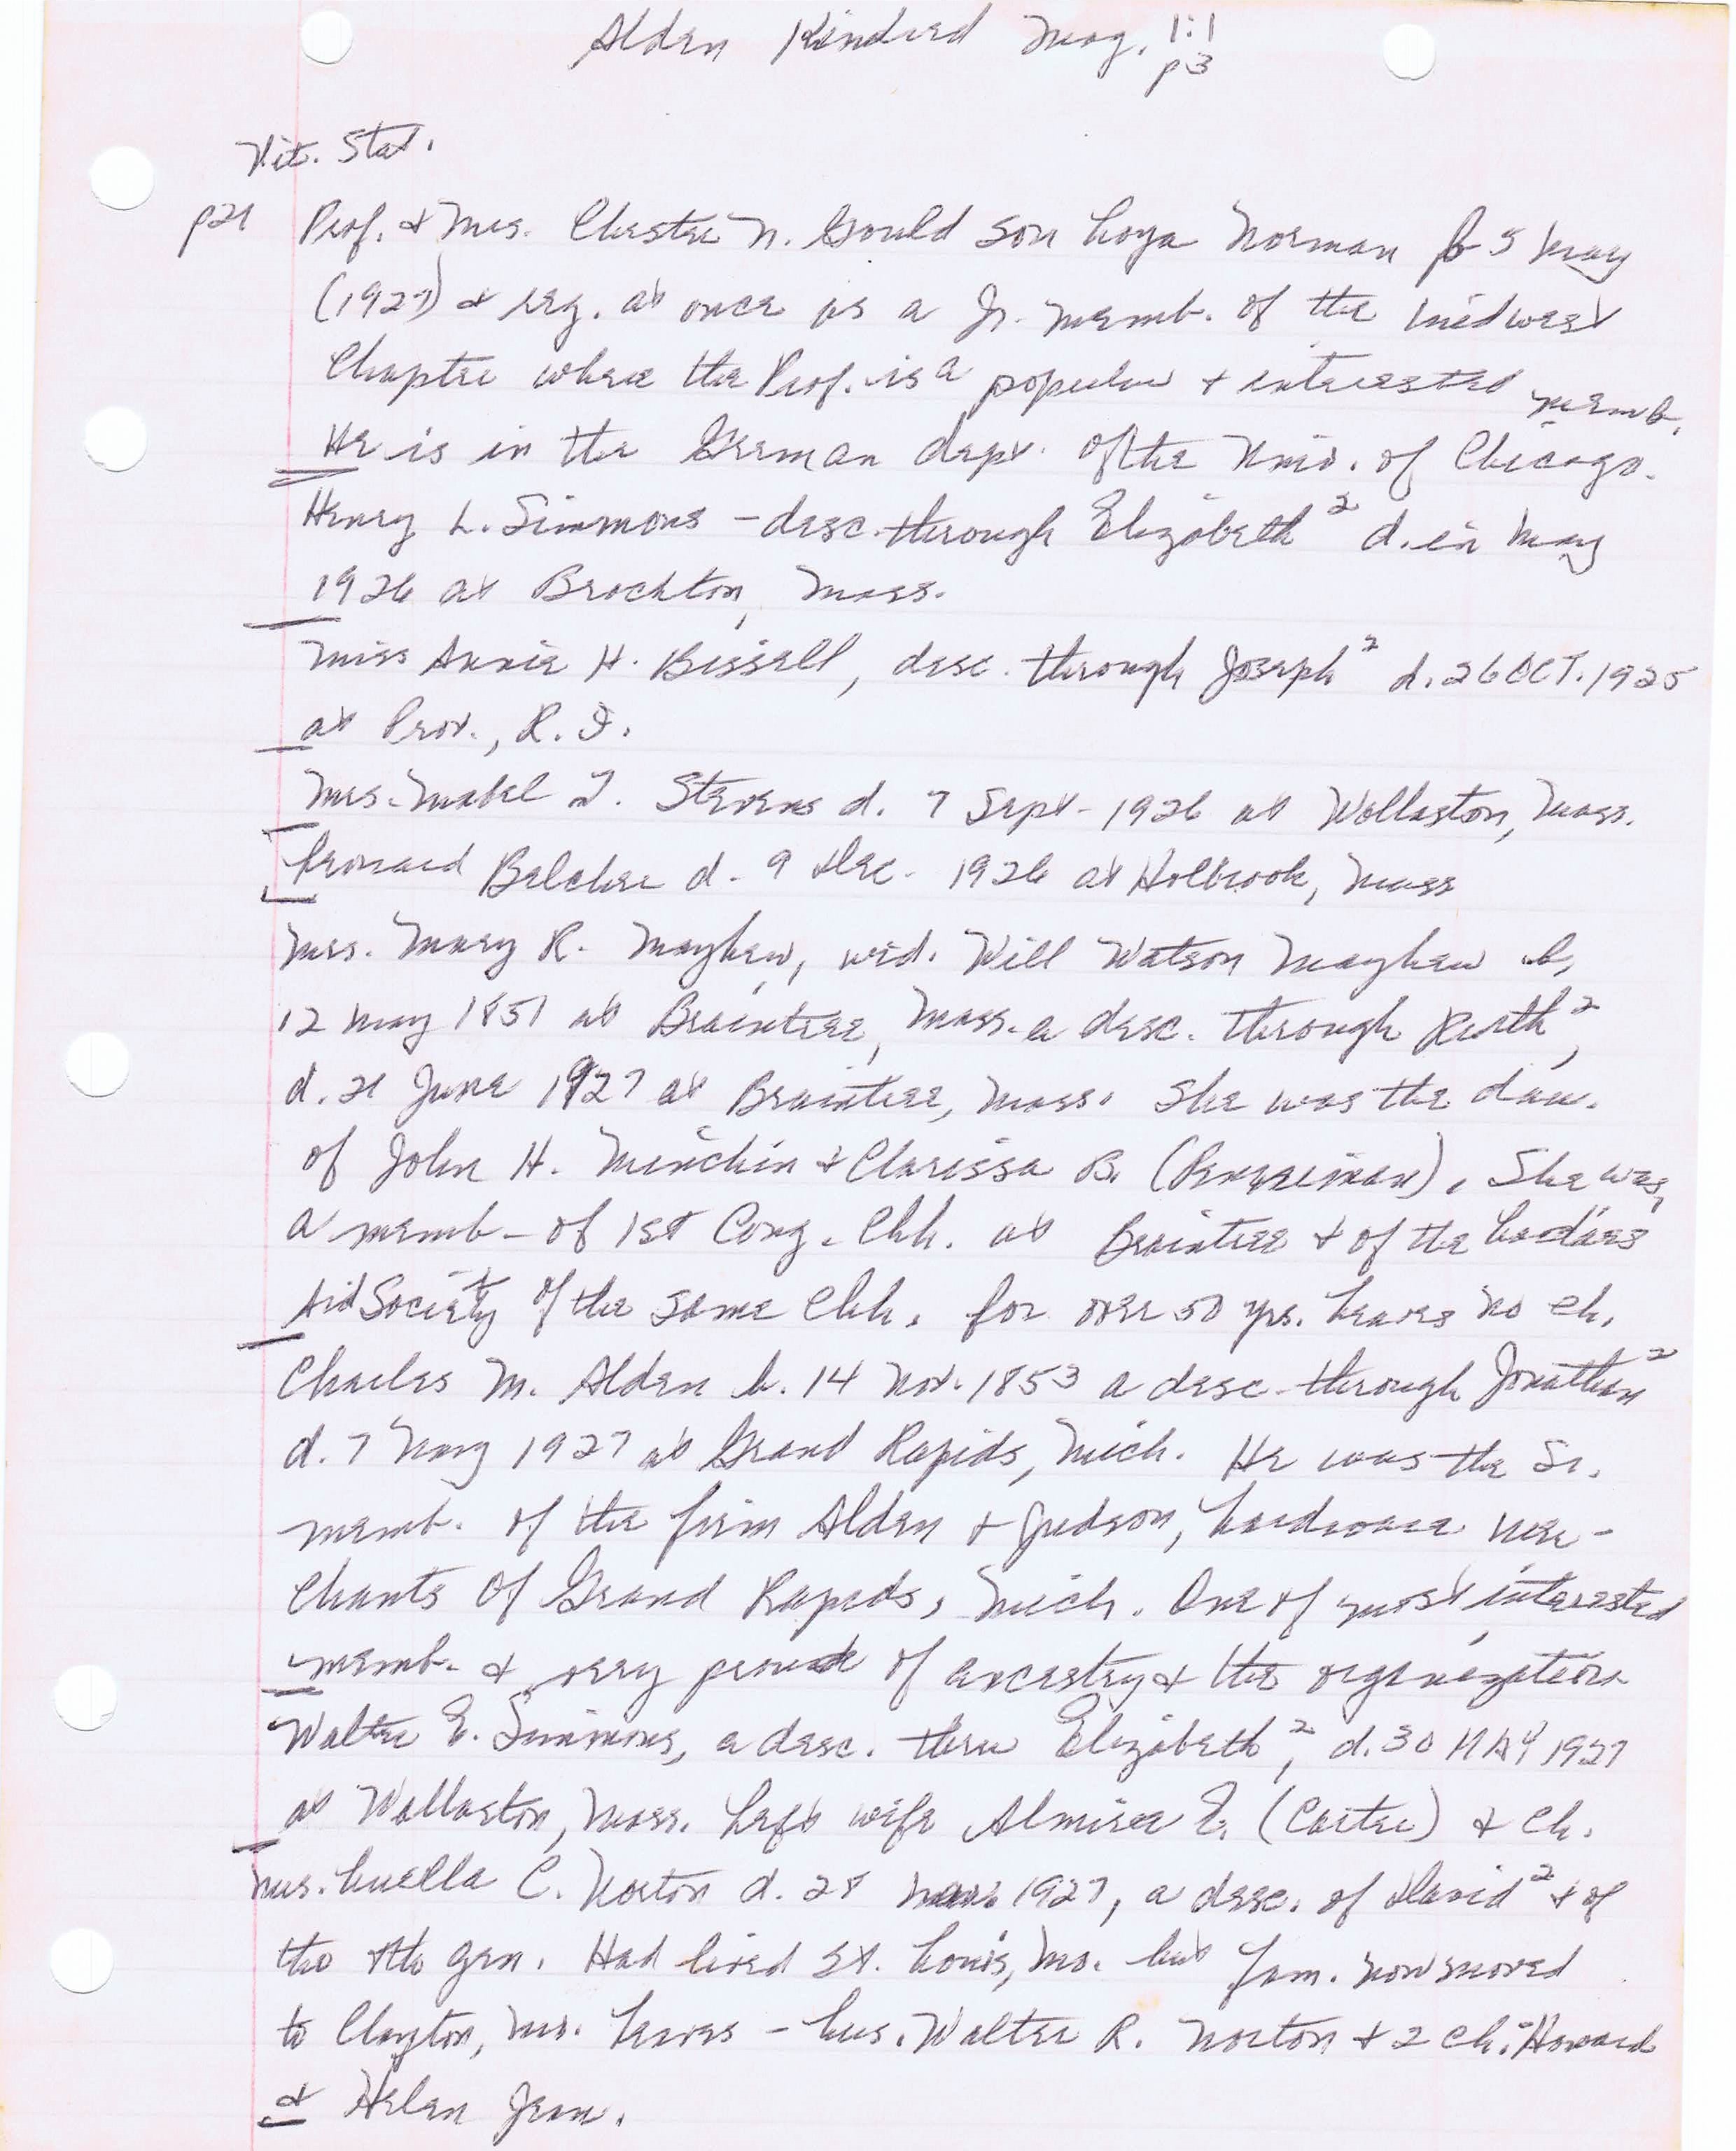 Alden Kindred Mag. 1:1
p3
Vit. Stat.
p21 Prof. & Mrs. Chester N. Gould son Loya Norman b 5 May
(1927) & reg. at once as a Jr. memb. of the Midwest
Chapter where the Prof. is a popular & interested memb.
He is in the German dept. of the Univ. of Chicago.
Henry L. Simmons - desc. through Elizabeth² d. in May
1926 at Brockton, Mass.
Miss Annie H. Bissell, desc. through Joseph² d. 26 OCT. 1925
at Prov., R.I.
Mrs. Mabel T. Stevens d. 7 Sept. 1926 at Wollaston, Mass.
Leonard Belcher d. 9 Dec. 1926 at Holbrook, Mass
Mrs. Mary R. Mayhew, wid. Will Watson Mayhew b.
12 May 1851 at Braintree, Mass. a desc. through Ruth²,
d. 21 June 1927 at Braintree, Mass. She was the dau.
of John H. Minchin & Clarissa B. (Penniman). She was
a memb. of 1st Cong. Chh. at Braintree & of the Ladies
Aid Society of the same Chh. for over 50 yrs. Leaves no ch.
Charles M. Alden b. 14 Nov. 1853 a desc. through Jonathan²
d. 7 May 1927 at Grand Rapids, Mich. He was the Sr.
memb. of the firm Alden & Judson, hardware mer-
chants of Grand Rapids, Mich. One of most interested
memb. & very proud of ancestry & the organization
Walter E. Simmons, a desc. thru Elizabeth², d. 30 MAY 1927
at Wollaston, Mass. Left wife Almira E. (Carter) & ch.
Mrs. Luella C. Norton d. 28 1927, a desc. of David² & of
the 8th gen. Had lived St. Louis, Mo. but fam. now moved
to Clayton, Mo. Leaves - hus. Walter R. Norton & 2 ch: Howard
& Helen Jean.